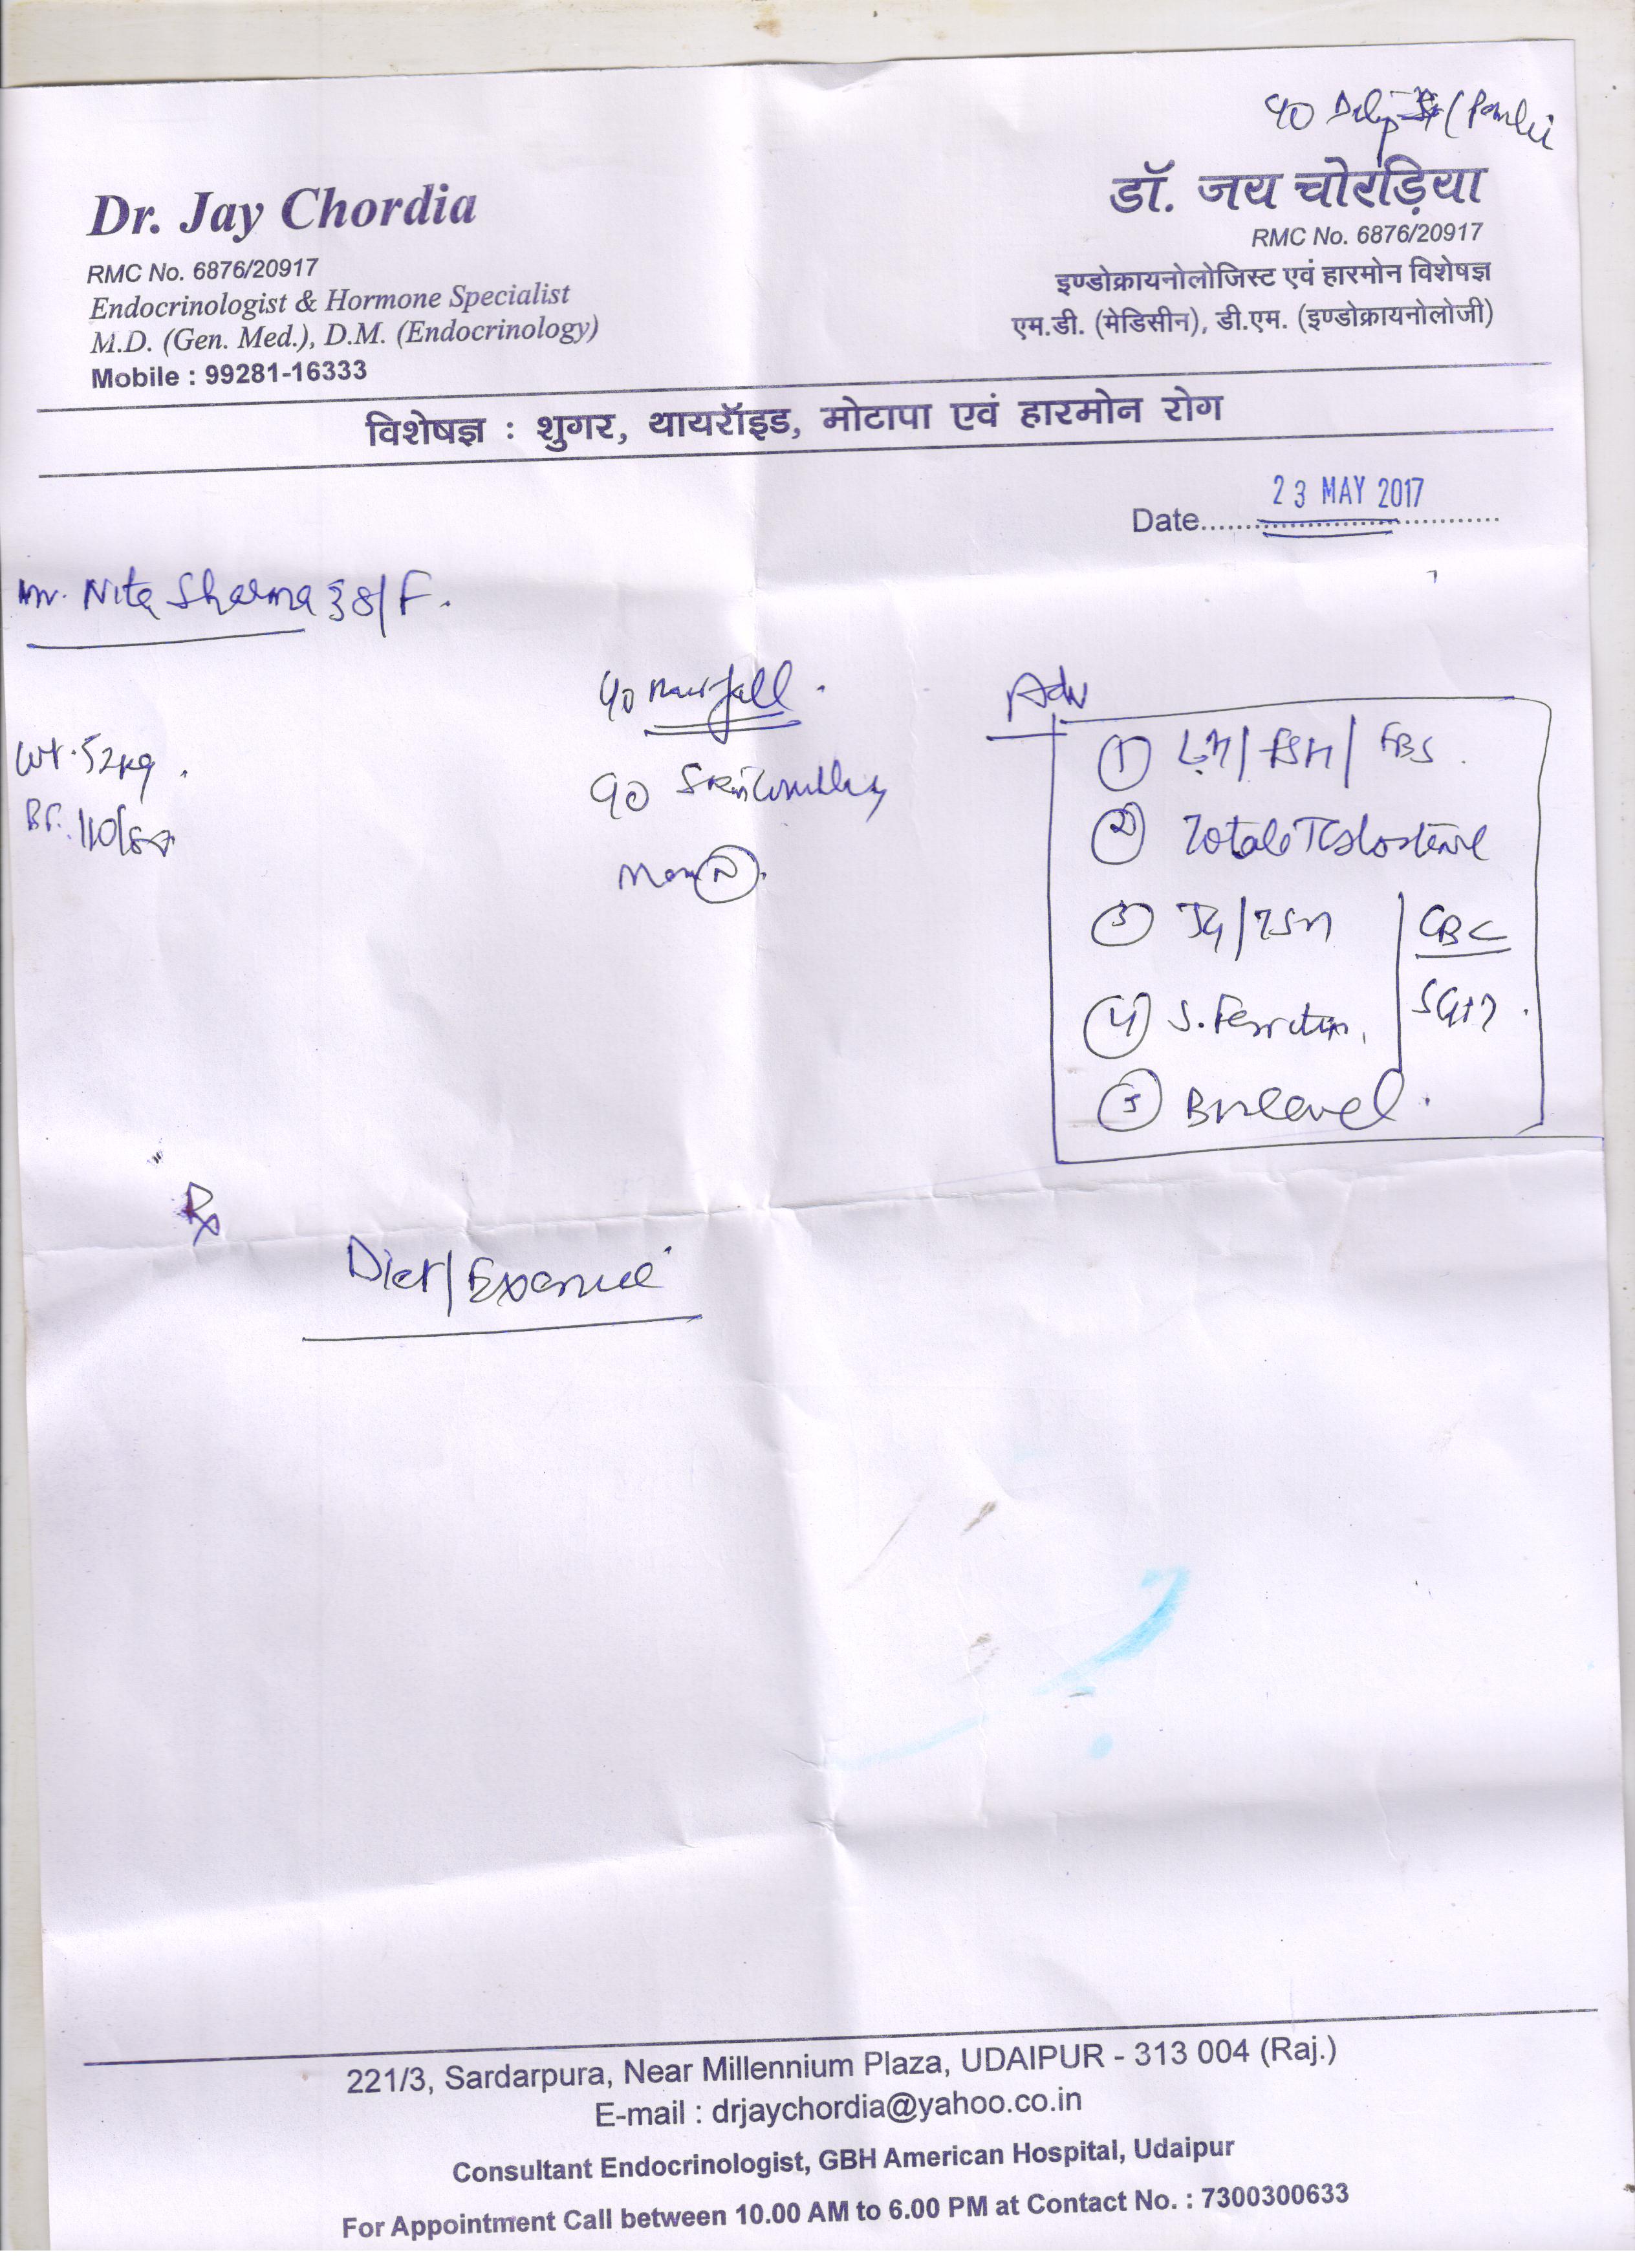 Dr. Jay Chordia
RMC No. 6876/20917
Endocrinologist & Hormone Specialist
M.D. (Gen. Med.), D.M. (Endocrinology)
Mobile : 99281-16333
डॉ. जय चोरड़िया
RMC No. 6876/20917
इण्डोक्रायनोलोजिस्ट एवं हारमोन विशेषज्ञ
एम.डी. (मेडिसीन), डी.एम. (इण्डोक्रायनोलोजी)
विशेषज्ञ : शुगर, थायरॉइड, मोटापा एवं हारमोन रोग
Date 23 MAY 2017
Nita Sharma 38/F.
Wt. 52kg.
BP. 110/80
fall.
Adv
① LH/FSH/FBS.
② Total Testosterone
③ T4/TSH
CBC
④ S. Ferritin,
SGPT.
⑤ level.
Rx
Diet/Exercise
221/3, Sardarpura, Near Millennium Plaza, UDAIPUR - 313 004 (Raj.)
E-mail : drjaychordia@yahoo.co.in
Consultant Endocrinologist, GBH American Hospital, Udaipur
For Appointment Call between 10.00 AM to 6.00 PM at Contact No. : 7300300633